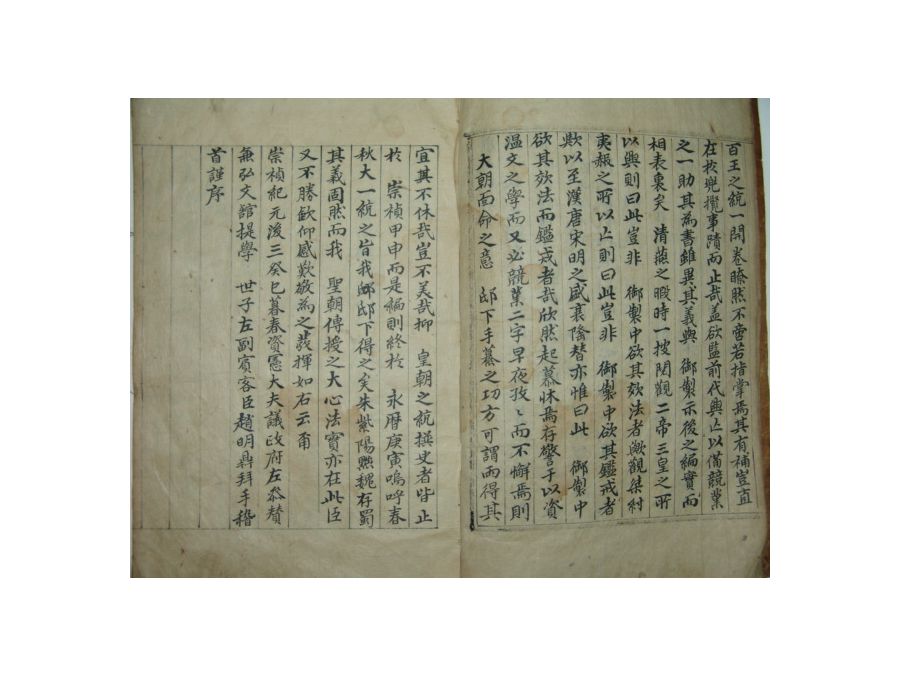 百王之統一開卷瞭然不啻若指掌焉其有補豈直
在投兠攬事蹟而止哉盖欲監前代興亡以備兢業
之一助其為書雖異其義與 御製示後之編實而
相表裏矣 清燕之暇時一披閱觀二帝三皇之所
以興則曰此豈非 御製中欲其效法者歟觀桀紂
夷赧之所以亡則曰此豈非 御製中欲其鑑戒者
歟以至漢唐宋明之盛衰隆替亦惟曰此 御製中
欲其效法而鑑戒者哉欣然起慕怵焉存警于以資
温文之學而又必兢業二字早夜孜〻而不懈焉則
大朝面命之意 邸下手纂之功方可謂而得其
宜其不休哉豈不美哉抑 皇朝之統撰史者皆止
於 崇禎甲申而是編則終於 永曆庚寅嗚呼春
秋大一統之旨我邸邸下得之矣朱紫陽黜魏存蜀
其義固然而我 聖朝傳授之大心法實亦在此臣
又不勝欽仰感歎敬為之發揮如右云甭
崇禎紀元後三癸巳暮春資憲大夫議政府左叅賛
兼弘文館提學 世子左副賓客臣趙明鼎拜手稽
首謹序